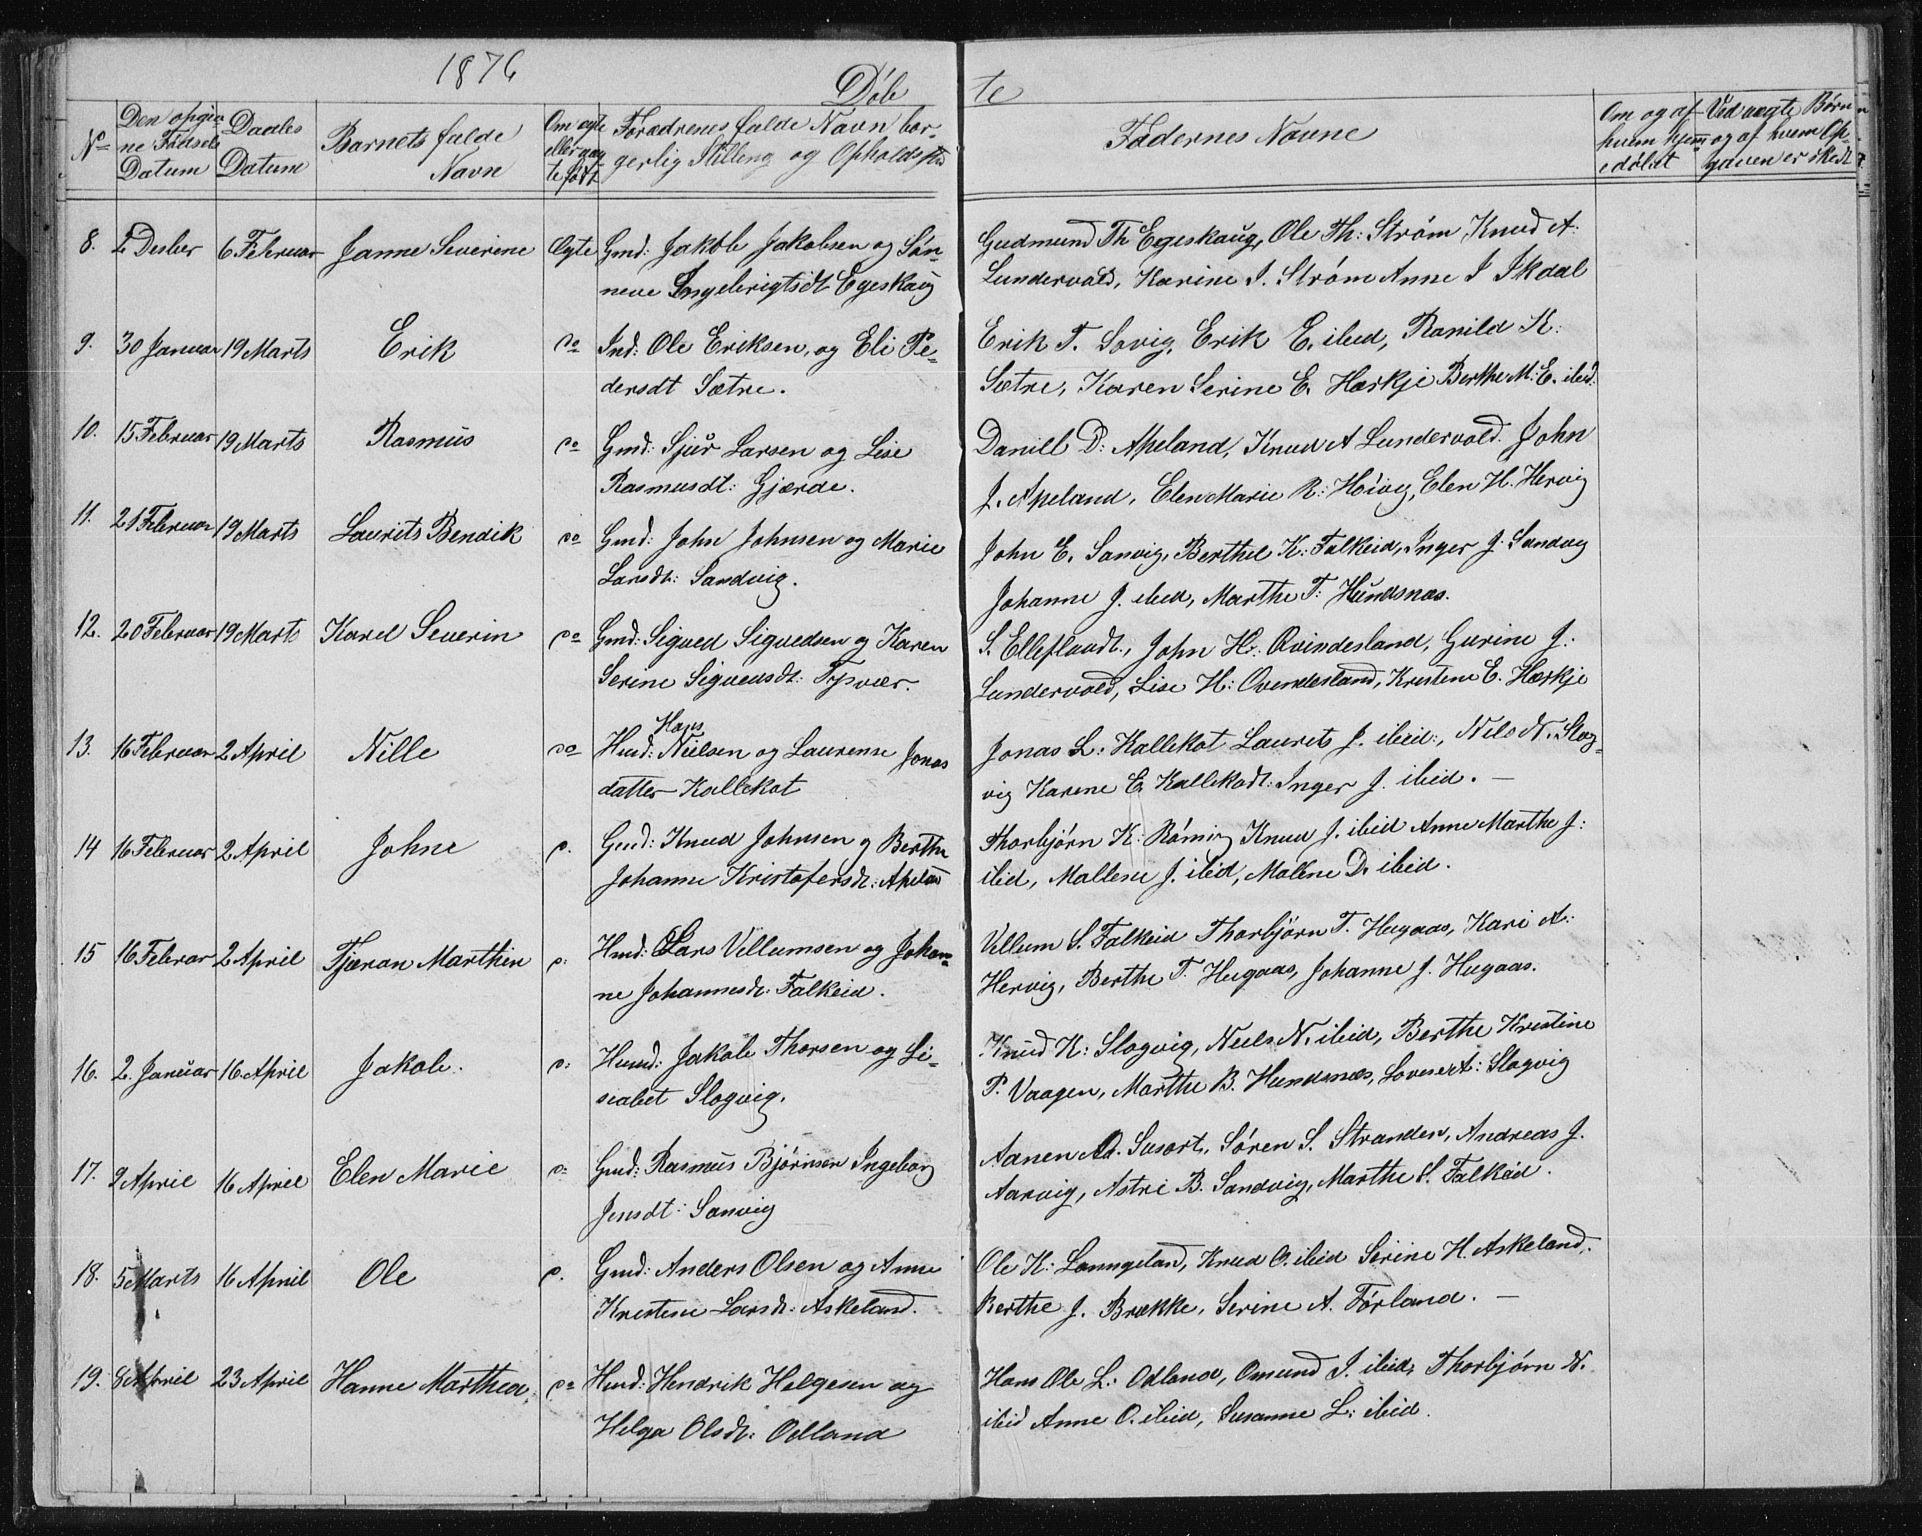 1876
Døbte
No
Den opgivne Fødsels Datum
Daabs Datum
Barnets fulde Navn
Om ægte eller uægte født
Forældrenes fulde Navn borgerlig Stilling og Opholdssted
Faddernes Navne
Om og af hvem hjemmedøbt
Ved uægte Børn og af hvem Opgaven er skedt
8. 2 Desber 6 Februar Janne Severine Ægte Gmd: Jakob Jakobsen og Sön-
neve Engebrigtsdt Egeskaug
Gudmund Th Egeskaug, Ole Th: Strøm Knud A:
Lundervold, Karine I. Strøm Anne I Ikdal
9. 30 Januar 19 Marts Erik do Ind: Ole Eriksen, og Eli Pe-
dersdt Sætre.
Erik T. Sovig, Erik E. ibid, Ranild K:
Sætre, Karen Serine E. Hærkje Berthe M: E. ibid.
10. 15 Februar 19 Marts Rasmus do Gmd: Sjur Larsen og Lise
Rasmusdt: Gjærde.
Daniel D: Apeland, Knud A Lundervold. John
J. Apeland, Elen Marie R: Høivg, Elen H. Hervig
11. 21 Februar 19 Marts Laurits Bendik do Gmd: John Johnsen og Marie
Larsdt: Sandvig.
John E. Sanvig, Berthe K: Falkeid, Inger J: Sandvg
Johanne J. ibid, Marthe T: Hundsnæs.
12. 20 Februar 19 Marts Karel Severin do Gmd: Sigved Sigvedsen og Karen
Serine Sigveusdt: Tysvær.
S. John H: Qvindesland, Gurine J:
Lundervold, Lise H: Ovendesland, Kristene E. Hærkje
13. 16 Februar 2 April Nille do Hmd: Hans Nielsen og Laurense Jonas
datter Kallekot
Jonas L: Kallekot Laurits J. ibid:, Nels N. Slog-
vig Karene E. Kallekodt: Inger J. ibid. —
14 16 Februar 2 April Johne d. Gmd: Knud Johnsen og Berthe
Johanne Kristofersdt: Apeland
Thorbjørn K: Knud J. ibid Anne Marthe J:
ibid, Mallene J. ibid, Malene D. ibid.
15 16 Februar 2 April Tjæran Marthin d: Hmd: Lars Villumsen og Johan-
ne Johannesdt: Falkeid.
Villum S. Falkeid Thorbjørn T. Hugaas, Kari A:
Hervig, Berthe T. Hugaas, Johanne J. Hugaas.
16. 2 Januar 16 April Jakob. d: Husmd: Jakob Thorsen og Li-
seabet Slogvig.
Knud K: Slogvig, Neels N. ibid, Berthe Kristine
P. Vaagen, Marthe B. Hundsnæs, A: Slogvig
17. 2 April 16 April Elen Marie d: Gmd: Rasmus Bjørnsen Ingeborg
Jensdt: Sanvig
Aanen Susort, Søren S. Stranden, Andreas J.
Aarvig, Astri B. Sandvig, Marthe S. Falkeid.
18. 5 Marts 16 April Ole d. Gmd: Anders Olsen og Anne
Kristine Larsdt: Askeland.
Ole K: Lanngeland, Knud O. ibid Serine H. Askeland.
Berthe J. Brække, Serine A. Førland. —
19. 8 April 23 April Hanne Marthea. do Hmd: Hendrik Helgesen og
Helga Olsdt: Odland
Hans Ole L: Odland, Omund I. ibid, Thorbjørn N.
ibid Anne O. ibid, Susanne L: ibid.